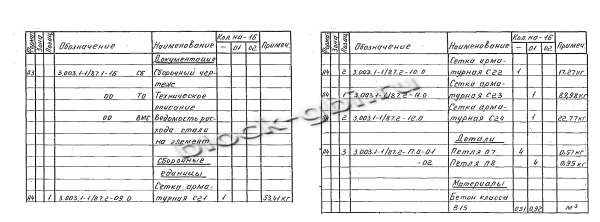 Формат Зона Позиц. Обозначение Наименование Кол. на -1Б Примеч.
– 01 02
Документация
А3 3.003.1-1/87.1-1Б СБ Сборочный чер-
теж
00 ТО Техническое
описание
00 ВМС Ведомость рас-
хода стали
на элемент
Сборочные
единицы
Сетка арма-
А4 1 3.003.1-1/87.2-09.0 турная С21 1 53,41 кг
Формат Зона Позиц. Обозначение Наименование Кол. на -1Б Примеч.
– 01 02
Сетка арма-
А4 2 3.003.1-1/87.2-10.0 турная С22 1 17,27 кг
Сетка арма-
А4 1 3.003.1-1/87.2-11.0 турная С23 1 89,98 кг
Сетка арма-
А4 2 3.003.1-1/87.2-12.0 турная С24 1 22,77 кг
Детали
А4 3 3.003.1-1/87.2-17.0-01 Петля П7 4 0,57 кг
-02 Петля П8 4 0,95 кг
Материалы
Бетон класса
В15 0,51 0,92 м³
block-gbi.ru